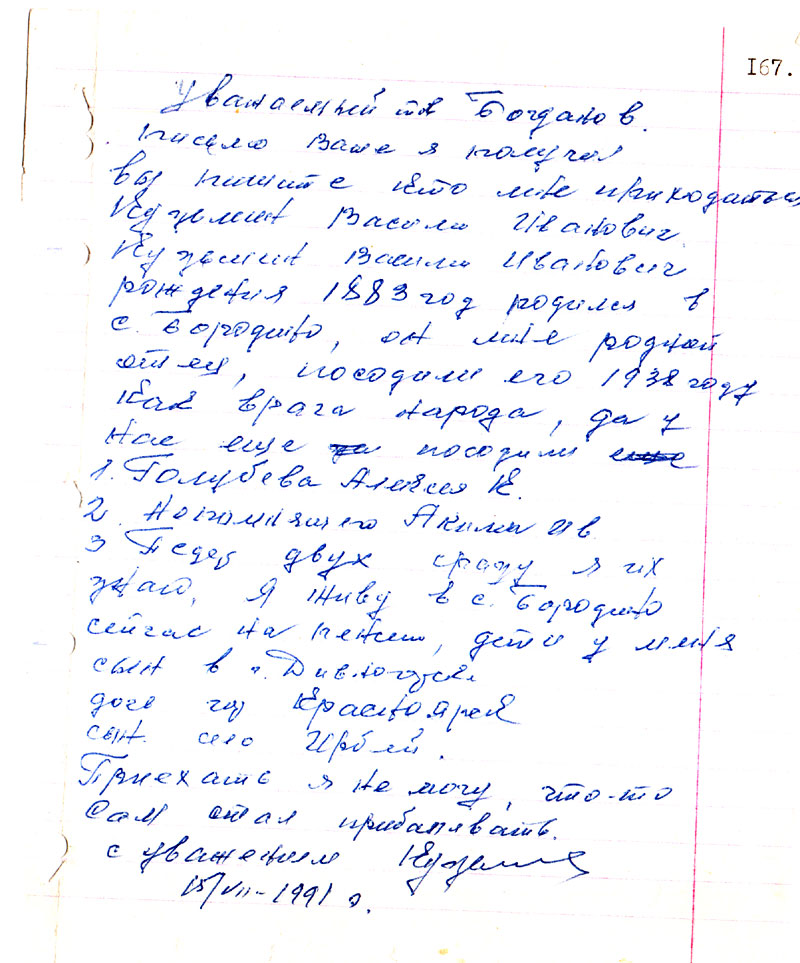 167.
Уважаемый тв Богданов.
писмо Ваше я получил
вы пишите кто мне приходиться
Кузьмин Василий Иванович
Кузьмин Василий Иванович
рождения 1883 год родился в
с. Бородино, он мне родной
отец, посодили его 1938 году
как врага народа, да у
нас еще за посодили еще
1. Голубева Алексея К.
2. Акима Ив.
3 двух сразу я их
знаю, Я живу в с. Бородино
сейчас на пенсии, дети у меня
сын в г. Дивногорск
дочь гор Красноярск
сын село Ирбей.
Приехать я не могу, что-то
Сам стал прибаливать.
с уважением Кузьмин
15/VII-1991 г.